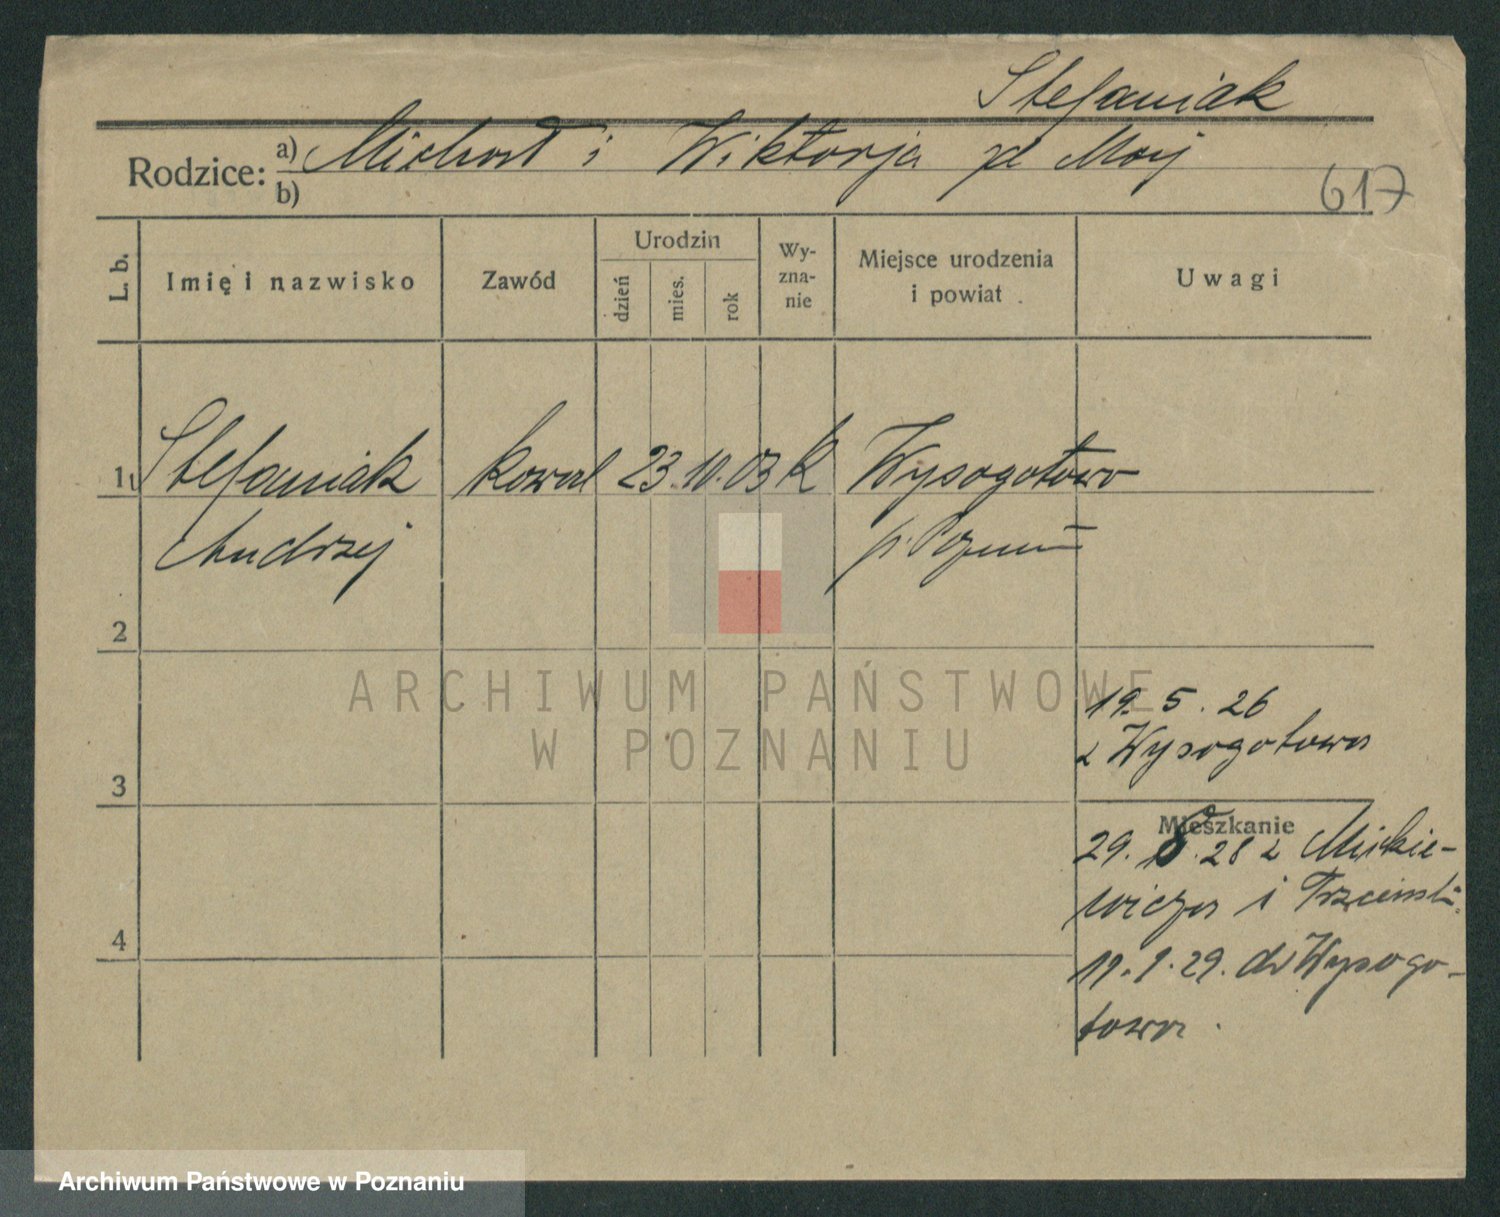 Stefaniak
Rodzice: a) Michał i Wiktorja zd Moij
b)
617
L. b.
Imię i nazwisko
Zawód
Urodzin
dzień
mies.
rok
Wy-
zna-
nie
Miejsce urodzenia
i powiat
Uwagi
1 Stefaniak kowal 23.10.03 K Wysogotowo
Andrzej p. Poznań
2
19. 5. 26
z Wysogotowa
3
Mieszkanie
29. 8. 28 z Mickie-
wicza i
4
19. 1. 29. do Wysogo-
towa.
ARCHIWUM PAŃSTWOWE
W POZNANIU
Archiwum Państwowe w Poznaniu